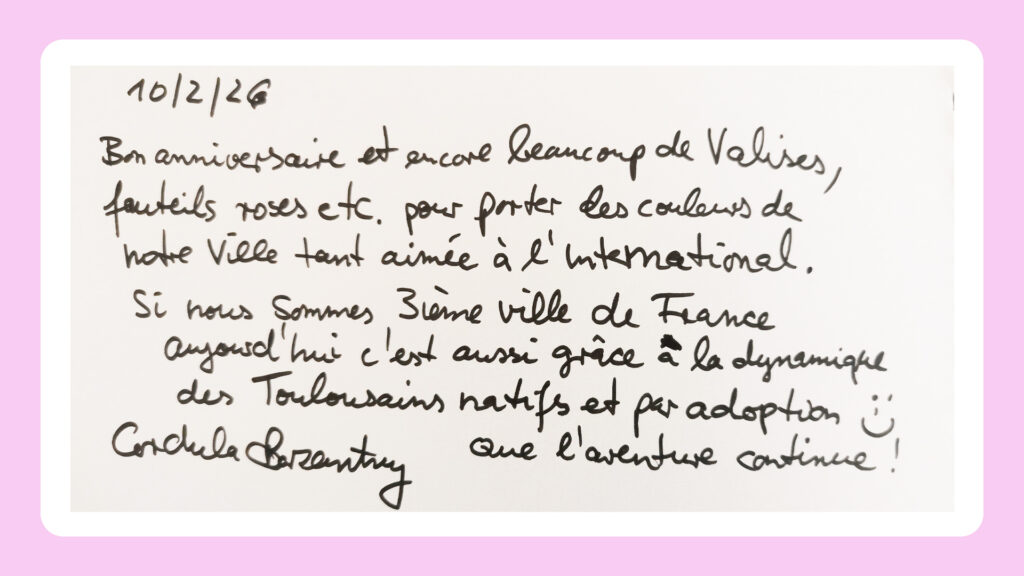 10/2/26
Bon anniversaire et encore beaucoup de Valises,
fauteils roses etc. pour porter les couleurs de
notre Ville tant aimée à l'International.
Si nous sommes 3ième ville de France
aujourd'hui c'est aussi grâce à la dynamique
des Toulousains natifs et par adoption :)
Cordula que l'aventure continue !